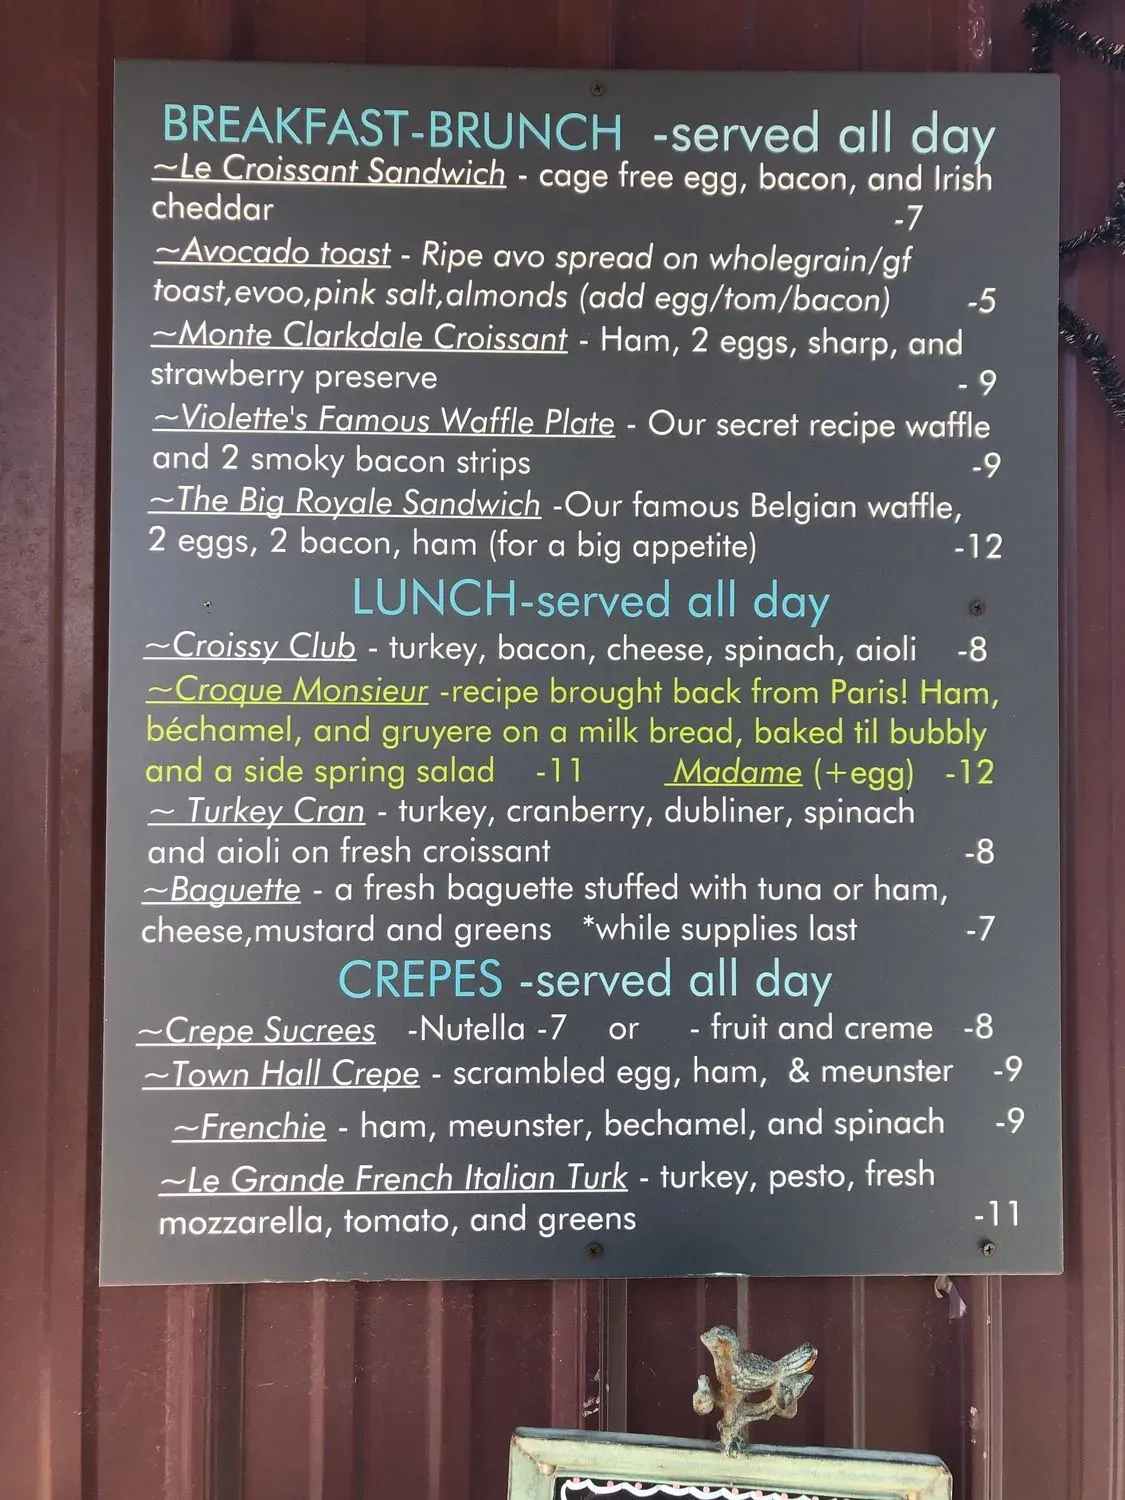 BREAKFAST-BRUNCH -served all day
~Le Croissant Sandwich - cage free egg, bacon, and Irish
cheddar -7
~Avocado toast - Ripe avo spread on wholegrain/gf
toast,evoo,pink salt,almonds (add egg/tom/bacon) -5
~Monte Clarkdale Croissant - Ham, 2 eggs, sharp, and
strawberry preserve - 9
~Violette's Famous Waffle Plate - Our secret recipe waffle
and 2 smoky bacon strips -9
~The Big Royale Sandwich -Our famous Belgian waffle,
2 eggs, 2 bacon, ham (for a big appetite) -12
LUNCH-served all day
~Croissy Club - turkey, bacon, cheese, spinach, aioli -8
~Croque Monsieur -recipe brought back from Paris! Ham,
béchamel, and gruyere on a milk bread, baked til bubbly
and a side spring salad -11 Madame (+egg) -12
~ Turkey Cran - turkey, cranberry, dubliner, spinach
and aioli on fresh croissant -8
~Baguette - a fresh baguette stuffed with tuna or ham,
cheese,mustard and greens *while supplies last -7
CREPES -served all day
~Crepe Sucrees -Nutella -7 or - fruit and creme -8
~Town Hall Crepe - scrambled egg, ham, & meunster -9
~Frenchie - ham, meunster, bechamel, and spinach -9
~Le Grande French Italian Turk - turkey, pesto, fresh
mozzarella, tomato, and greens -11